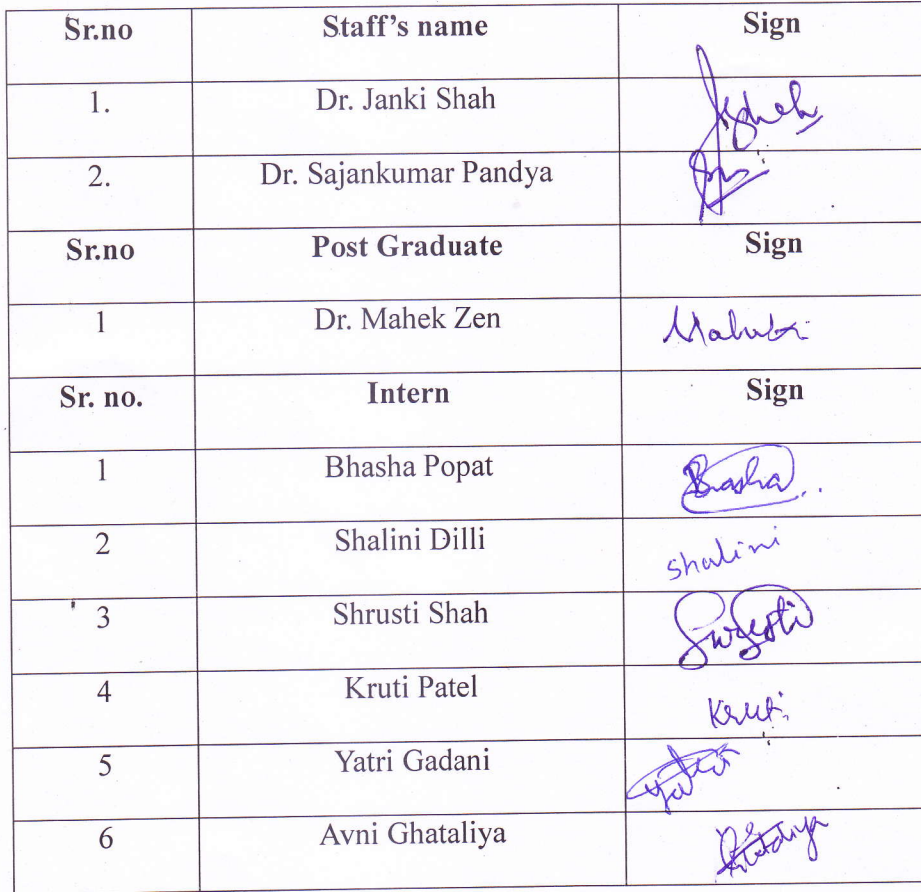 Sr.no Staff's name Sign
1. Dr. Janki Shah
2. Dr. Sajankumar Pandya
Sr.no Post Graduate Sign
1 Dr. Mahek Zen Mahek
Sr. no. Intern Sign
1 Bhasha Popat Bhasha
2 Shalini Dilli shalini
3 Shrusti Shah
4 Kruti Patel Kruti
5 Yatri Gadani Yatri
6 Avni Ghataliya